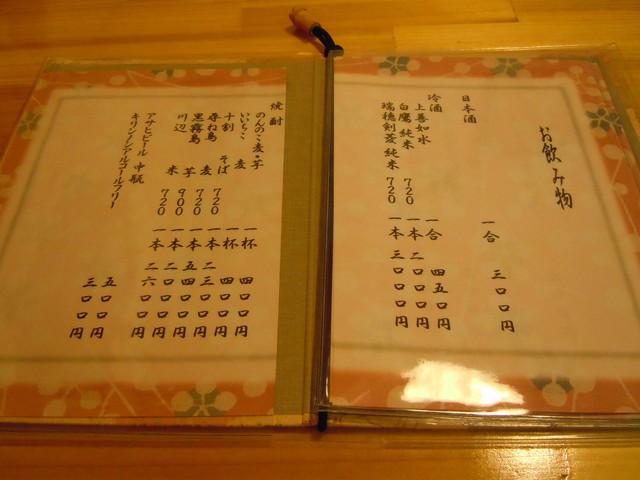 お飲み物
日本酒 一合 三〇〇円
冷酒
上善如水 一合 四五〇円
白鷹 純米 720 一本 二〇〇〇円
瑞穂剣菱 純米 720 一本 三〇〇〇円
焼酎
のんのこ 麦・芋 一杯 四〇〇円
いいちこ 麦 一杯 四〇〇円
十割 そば 720 一本 二三〇〇円
尋ね島 麦 720 一本 五四〇〇円
黒霧島 芋 900 一本 二〇〇〇円
川辺 米 720 一本 二六〇〇円
アサヒビール 中瓶 五〇〇円
キリンノンアルコールフリー 三〇〇円